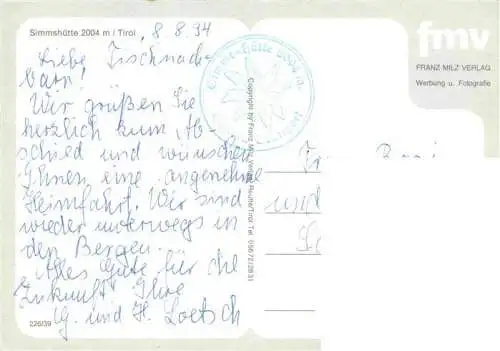 Simmshütte 2004 m / Tirol, 8.8.94
Liebe Tischnach-
barn!
Wir grüßen Sie
herzlich zum Ab-
schied und wünschen
Ihnen eine angenehme
Heimfahrt. Wir sind
wieder unterwegs in
den Bergen.
Alles Gute für die
Zukunft! Ihre
G. und H. Loetsch
226/39
Simms-Hütte 2004 m.
Copyright by Franz Milz Verlag Reutte/Tirol Tel. 05672/2831
fmv
FRANZ MILZ VERLAG
Werbung u. Fotografie